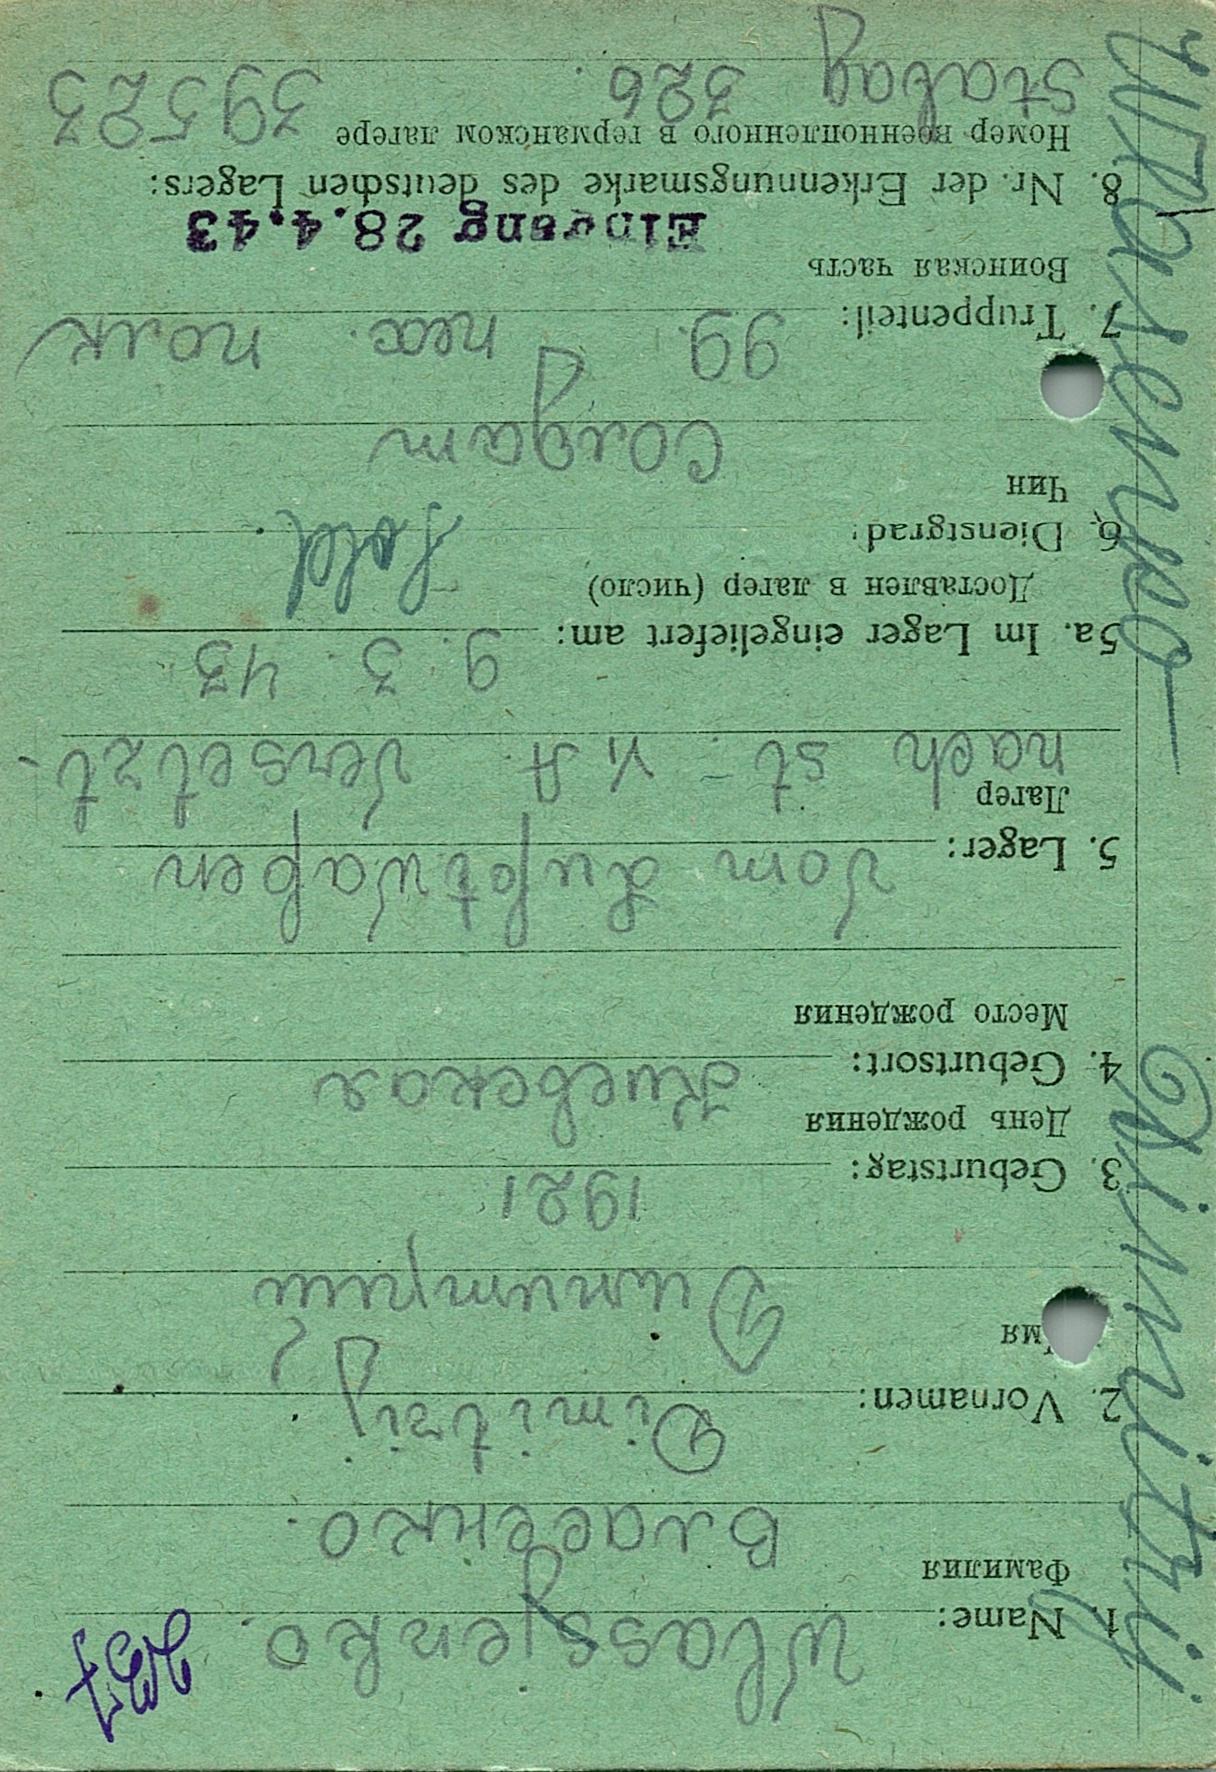 237
1. Name: Wlassjenko.
Фамилия
Власенко.
2. Vornamen: Dimitrij
Имя
Димитрий
3. Geburtstag: 1921
День рождения
4. Geburtsort: Киевская
Место рождения
5. Lager: Vom Luftwafen
Лагер
nach st- VI A Versetzt-
5a. Im Lager eingeliefert am: 9. 3. 43
Доставлен в лагер (число)
6. Dienstgrad: Sold.
Чин
Солдат
7. Truppenteil: 99. пех. полк
Воинская часть
Eingang 28.4.43
8. Nr. der Erkennungsmarke des deutschen Lagers:
Номер военнопленного в германском лагере
Stalag 326. 39523
Wlasenko Dimitrij